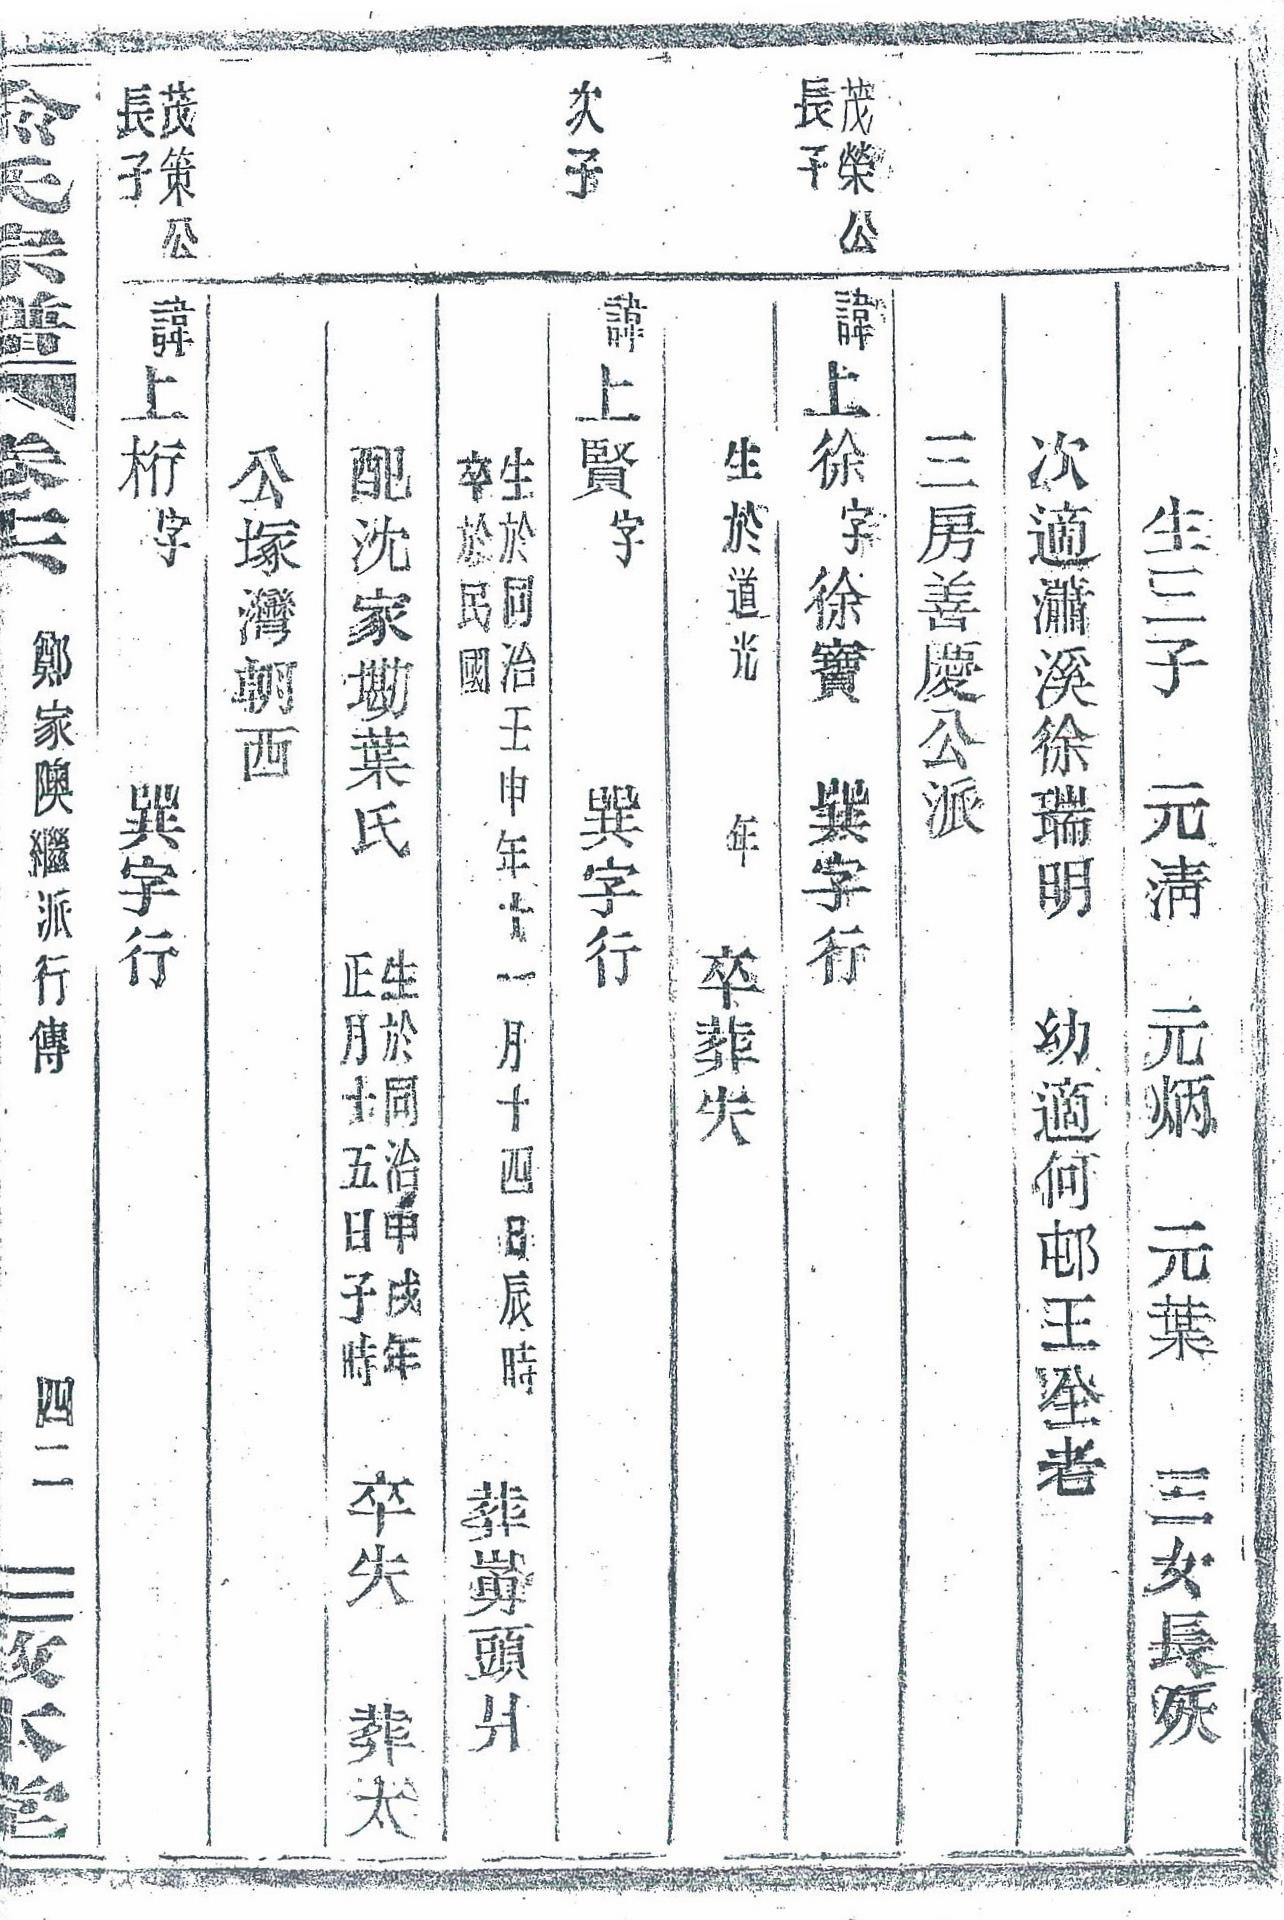 生三子　元淸　元炳　元葉　三女長殀
次適瀟溪徐瑞明　幼適何邨王坙老
三房善慶公派
茂榮公
長子
諱上徐字徐寶　巽字行
生於道光　年　卒葬失
次子
諱上賢字　巽字行
生於同治壬申年十一月十四日辰時
卒於民國
葬塴頭爿
配沈家塲葉氏
生於同治甲戌年
正月十五日子時
卒失　葬太
公塚灣朝西
茂策公
長子
諱上桁字　巽字行
氏宗譜　卷六　鄭家隩繼派行傳　四二　敦本堂